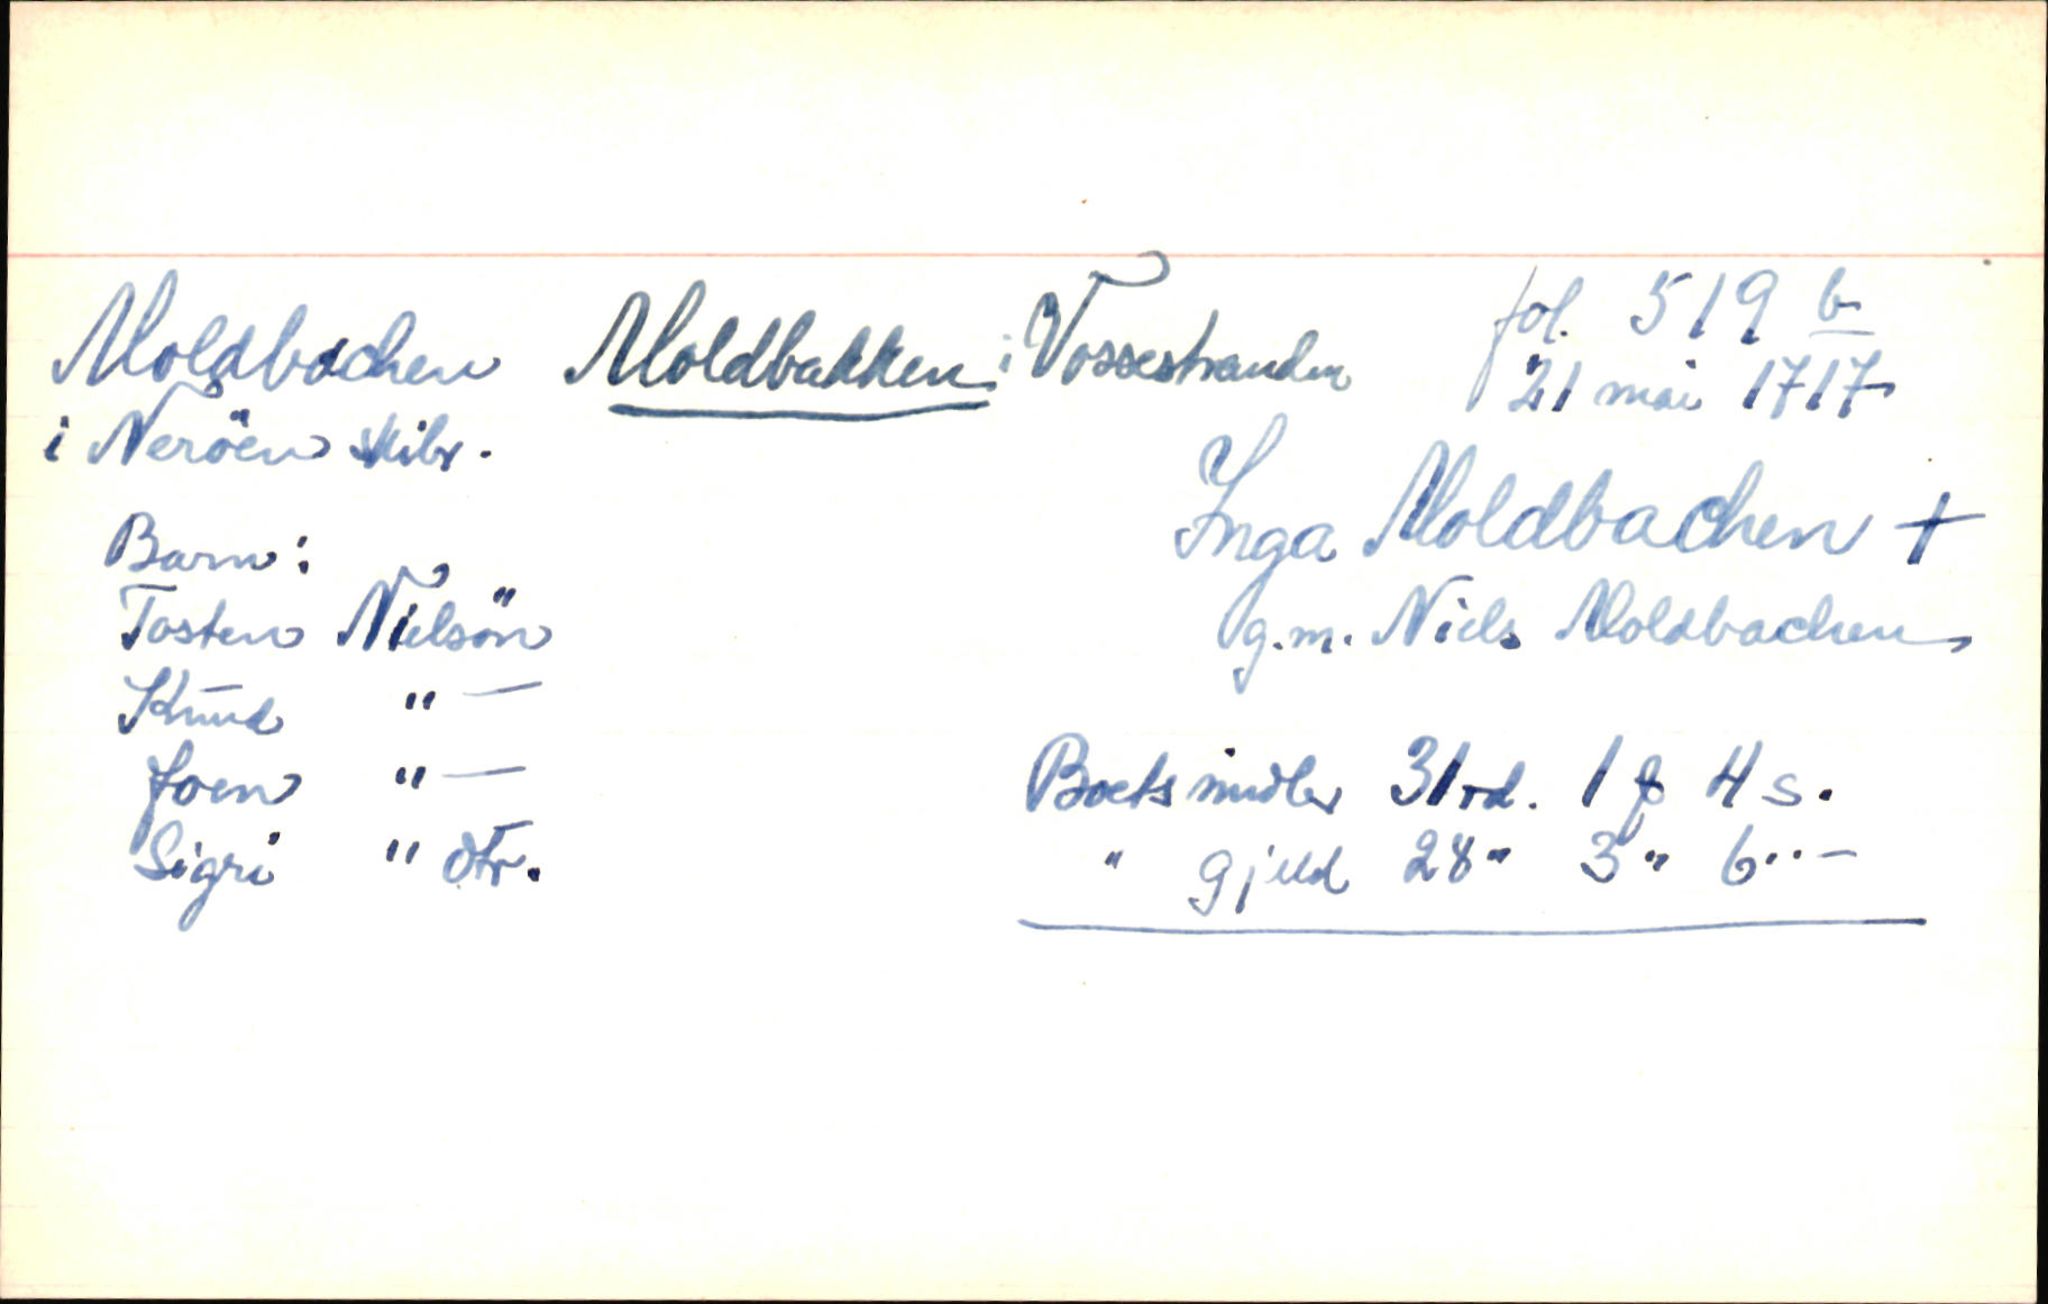 Moldbachen Moldbakken i Vossestranden fol. 519 b
i Neröen skibr. 21 mai 1717
Inga Moldbachen +
g.m. Niels Moldbachen
Barn:
Tosten Nielsön
Knud " —
Joen " —
Sigri " dtr.
Boets midler 31 rd. 1 ƒ 4 s.
" gjeld 28 " 3 " 6 " —